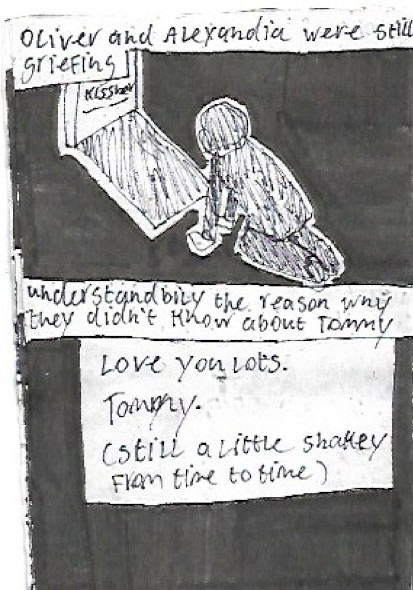 Oliver and Alexandia were still
griefing
Kissher
understandbily the reason why
they didn't know about Tommy
Love you lots.
Tommy.
(still a little shakey
from time to time)